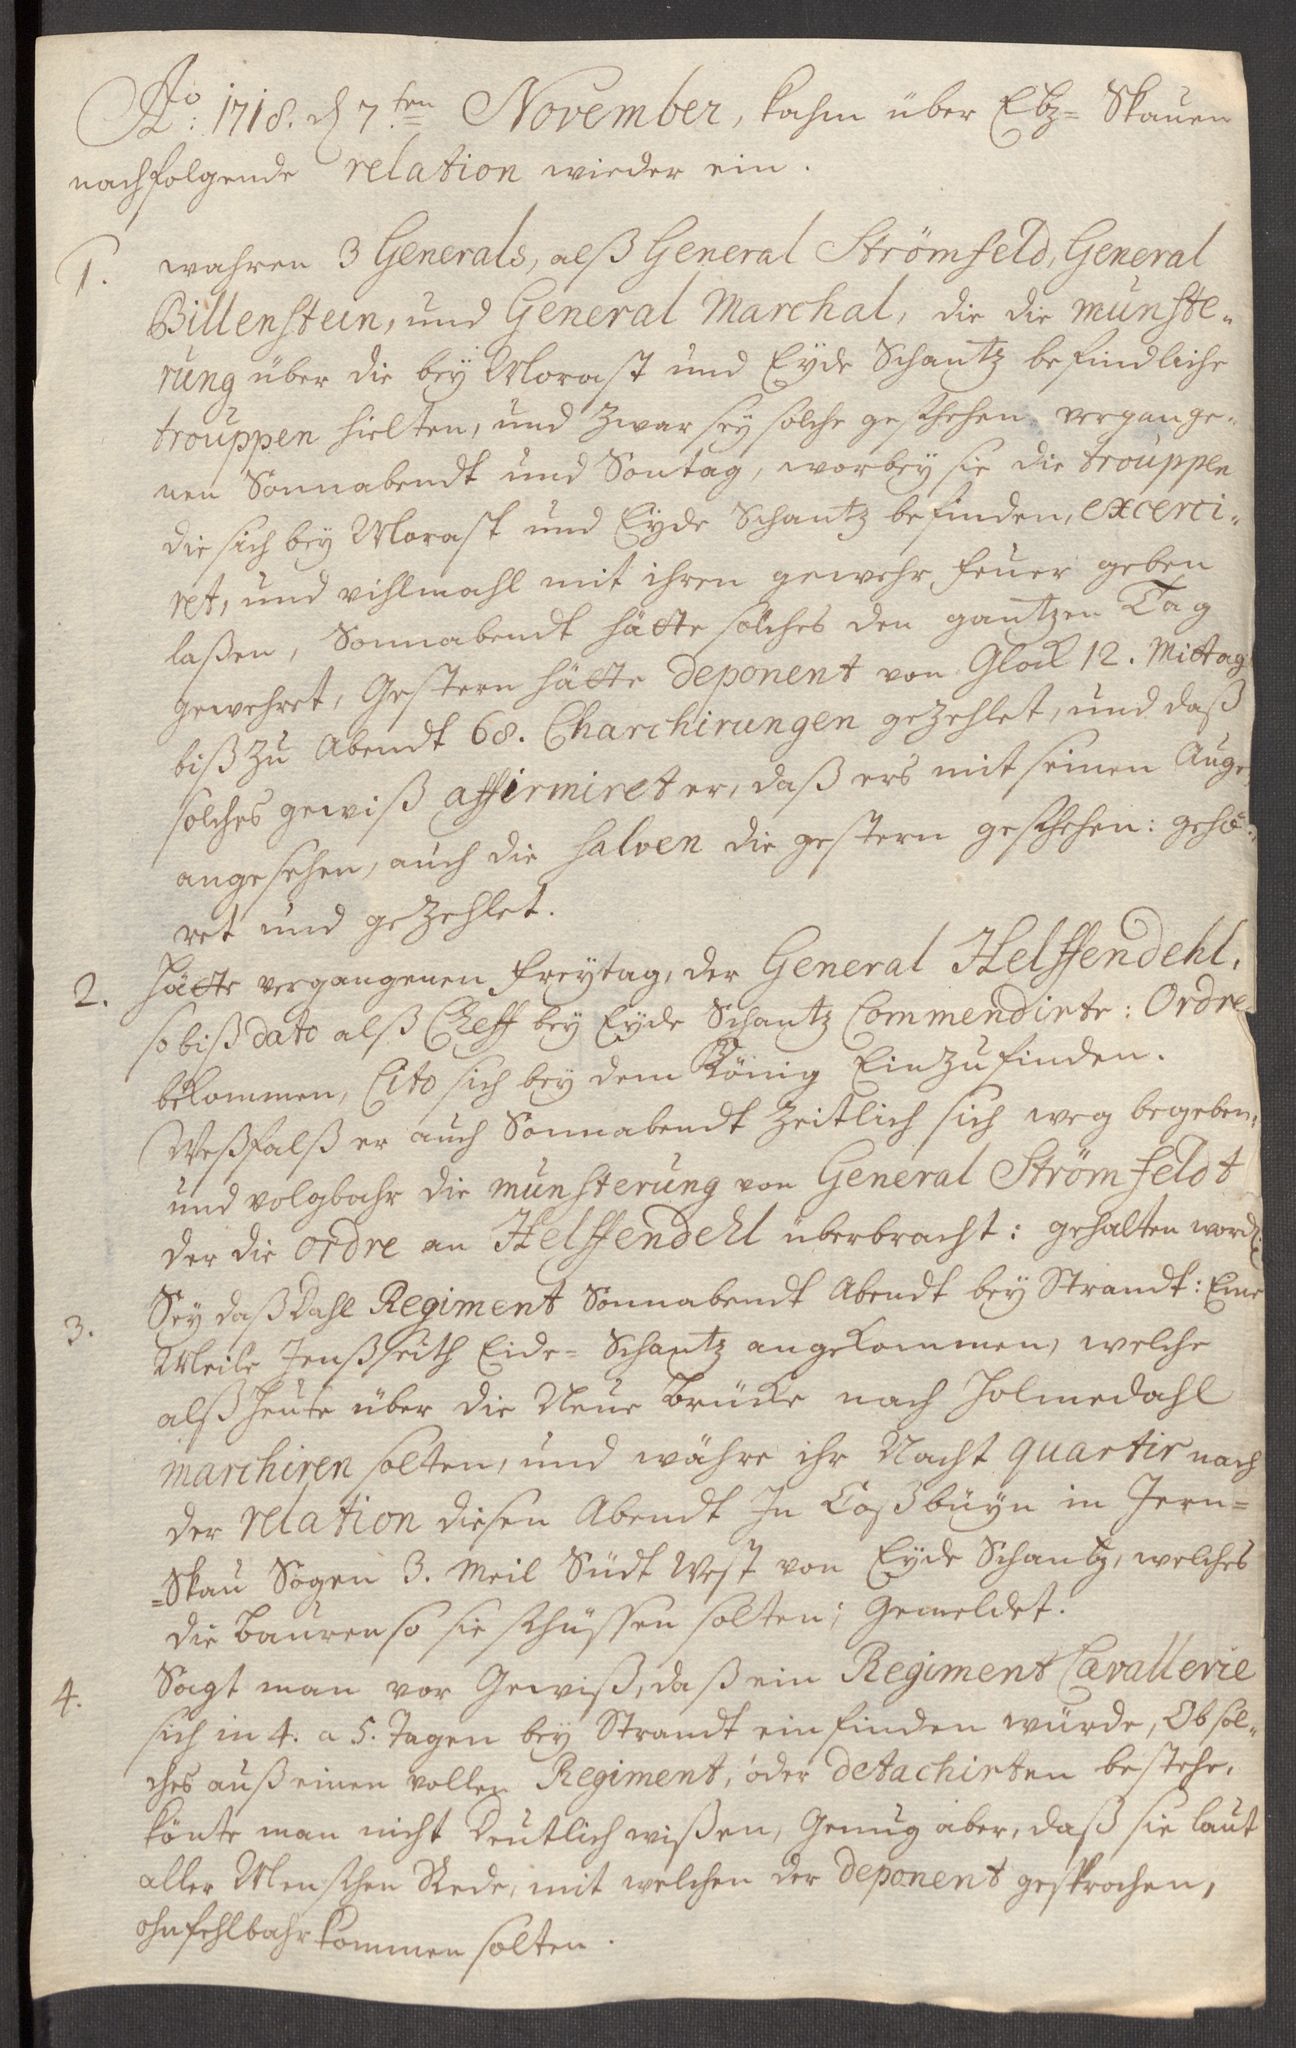 Aō: 1718. d 7ten November, kahm über Ebz= Skauen
nachfolgende relation wieder ein.
1. wahren 3 Generals, alß General Strömfeld, General
Billenstein, und General Marchal, die die munste-
rung über die bey Morast und Eyde Schantz befindliche
trouppen hielten, und zwar sey solche geschehen vergange-
nen Sonnabendt und Sontag, worbey sie die trouppen
die sich bey Morast und Eyde Schantz befinden, excerci-
ret, und vihlmahl mit ihren gewehr feuer geben
laßen, Sonnabendt hätte solches den gantzen Tag
gewehret, Gestern hätte deponent von Glock 12. Mittag
biß zu Abendt 68. Charchirungen gezehlet, und daß
solches gewiß affirmiret er, daß ers mit seinen Auge,
angesehen, auch die salven die gestern geschehen: gehö-
ret und gezehlet.
2. hätte vergangenen freytag, der General Helffendehl,
so biß dato alß Cheff bey Eyde Schantz Commendirte: Ordre
bekommen, Cito sich bey dem König Einzufinden.
Weßfalß er auch Sonnabendt zeitlich sich weg begeben,
und volgbahr die munsterung von General Strömfeldt
der die ordre an Helffendehl überbracht: gehalten word
3. Sey daß Dahl Regiment Sonnabendt Abendt bey Strandt: Eine
Meile Jenßseith Eide= Schantz angekommen, welche
alß heute über die Neue brücke nach Holmedahl
marchiren solten, und währe ihr Nacht quartir nach
der relation diesen Abendt In Toßbüyn in Jern=
=Skau Sogen 3. Meil Südt West von Eyde Schantz, welches
die bauren so sie schüssen solten; Gemeldet.
4. Sagt man vor Gewiß, daß ein Regiment Cavallerie
sich in 4. a 5. Tagen bey Strandt einfinden würde, Ob sol-
ches auß einen vollen Regiment, oder detachirten bestehe,
könte man nicht deutlich wißen, Genug aber, daß sie laut
aller Menschen Rede, mit welchen der deponent gesprochen,
ohnfehlbahr kommen solten.